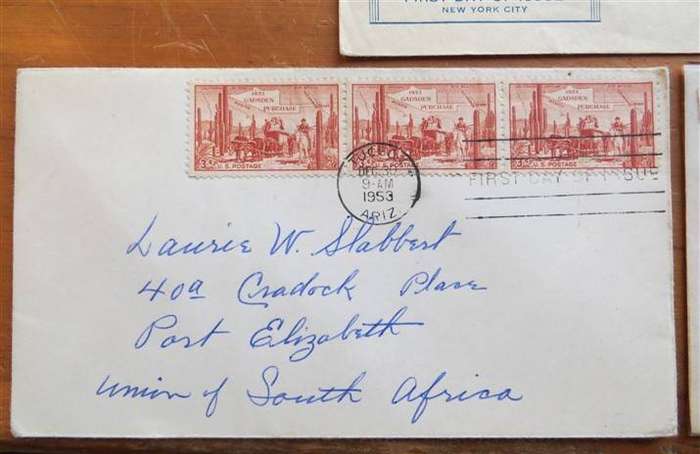 FIRST DAY OF ISSUE
NEW YORK CITY
1853 GADSDEN PURCHASE 1853 GADSDEN PURCHASE 1853 GADSDEN PURCHASE
3¢ U.S. POSTAGE U.S. POSTAGE U.S. POSTAGE
TUCSON
DEC 30
9-AM
1953
ARIZ
FIRST DAY OF ISSUE
Laurie W. Slabbert
40a Cradock Place
Port Elizabeth
Union of South Africa